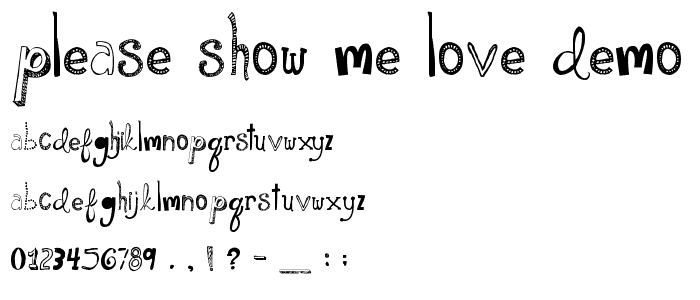 please show me love demo
abcdefghijklmnopqrstuvwxyz
abcdefghijklmnopqrstuvwxyz
0123456789 . , ! ? - _ : ;